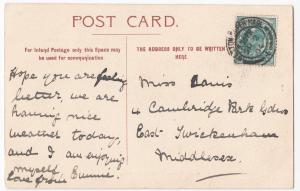 POST CARD.
For Inland Postage only this Space may
be used for communication
THE ADDRESS ONLY TO BE WRITTEN
HERE.
Hope you are feeling
better, we are
having nice
weather today,
and I am enjoying
myself
love from
Miss
4 Cambridge Park Gdns
East Twickenham
Middlesex